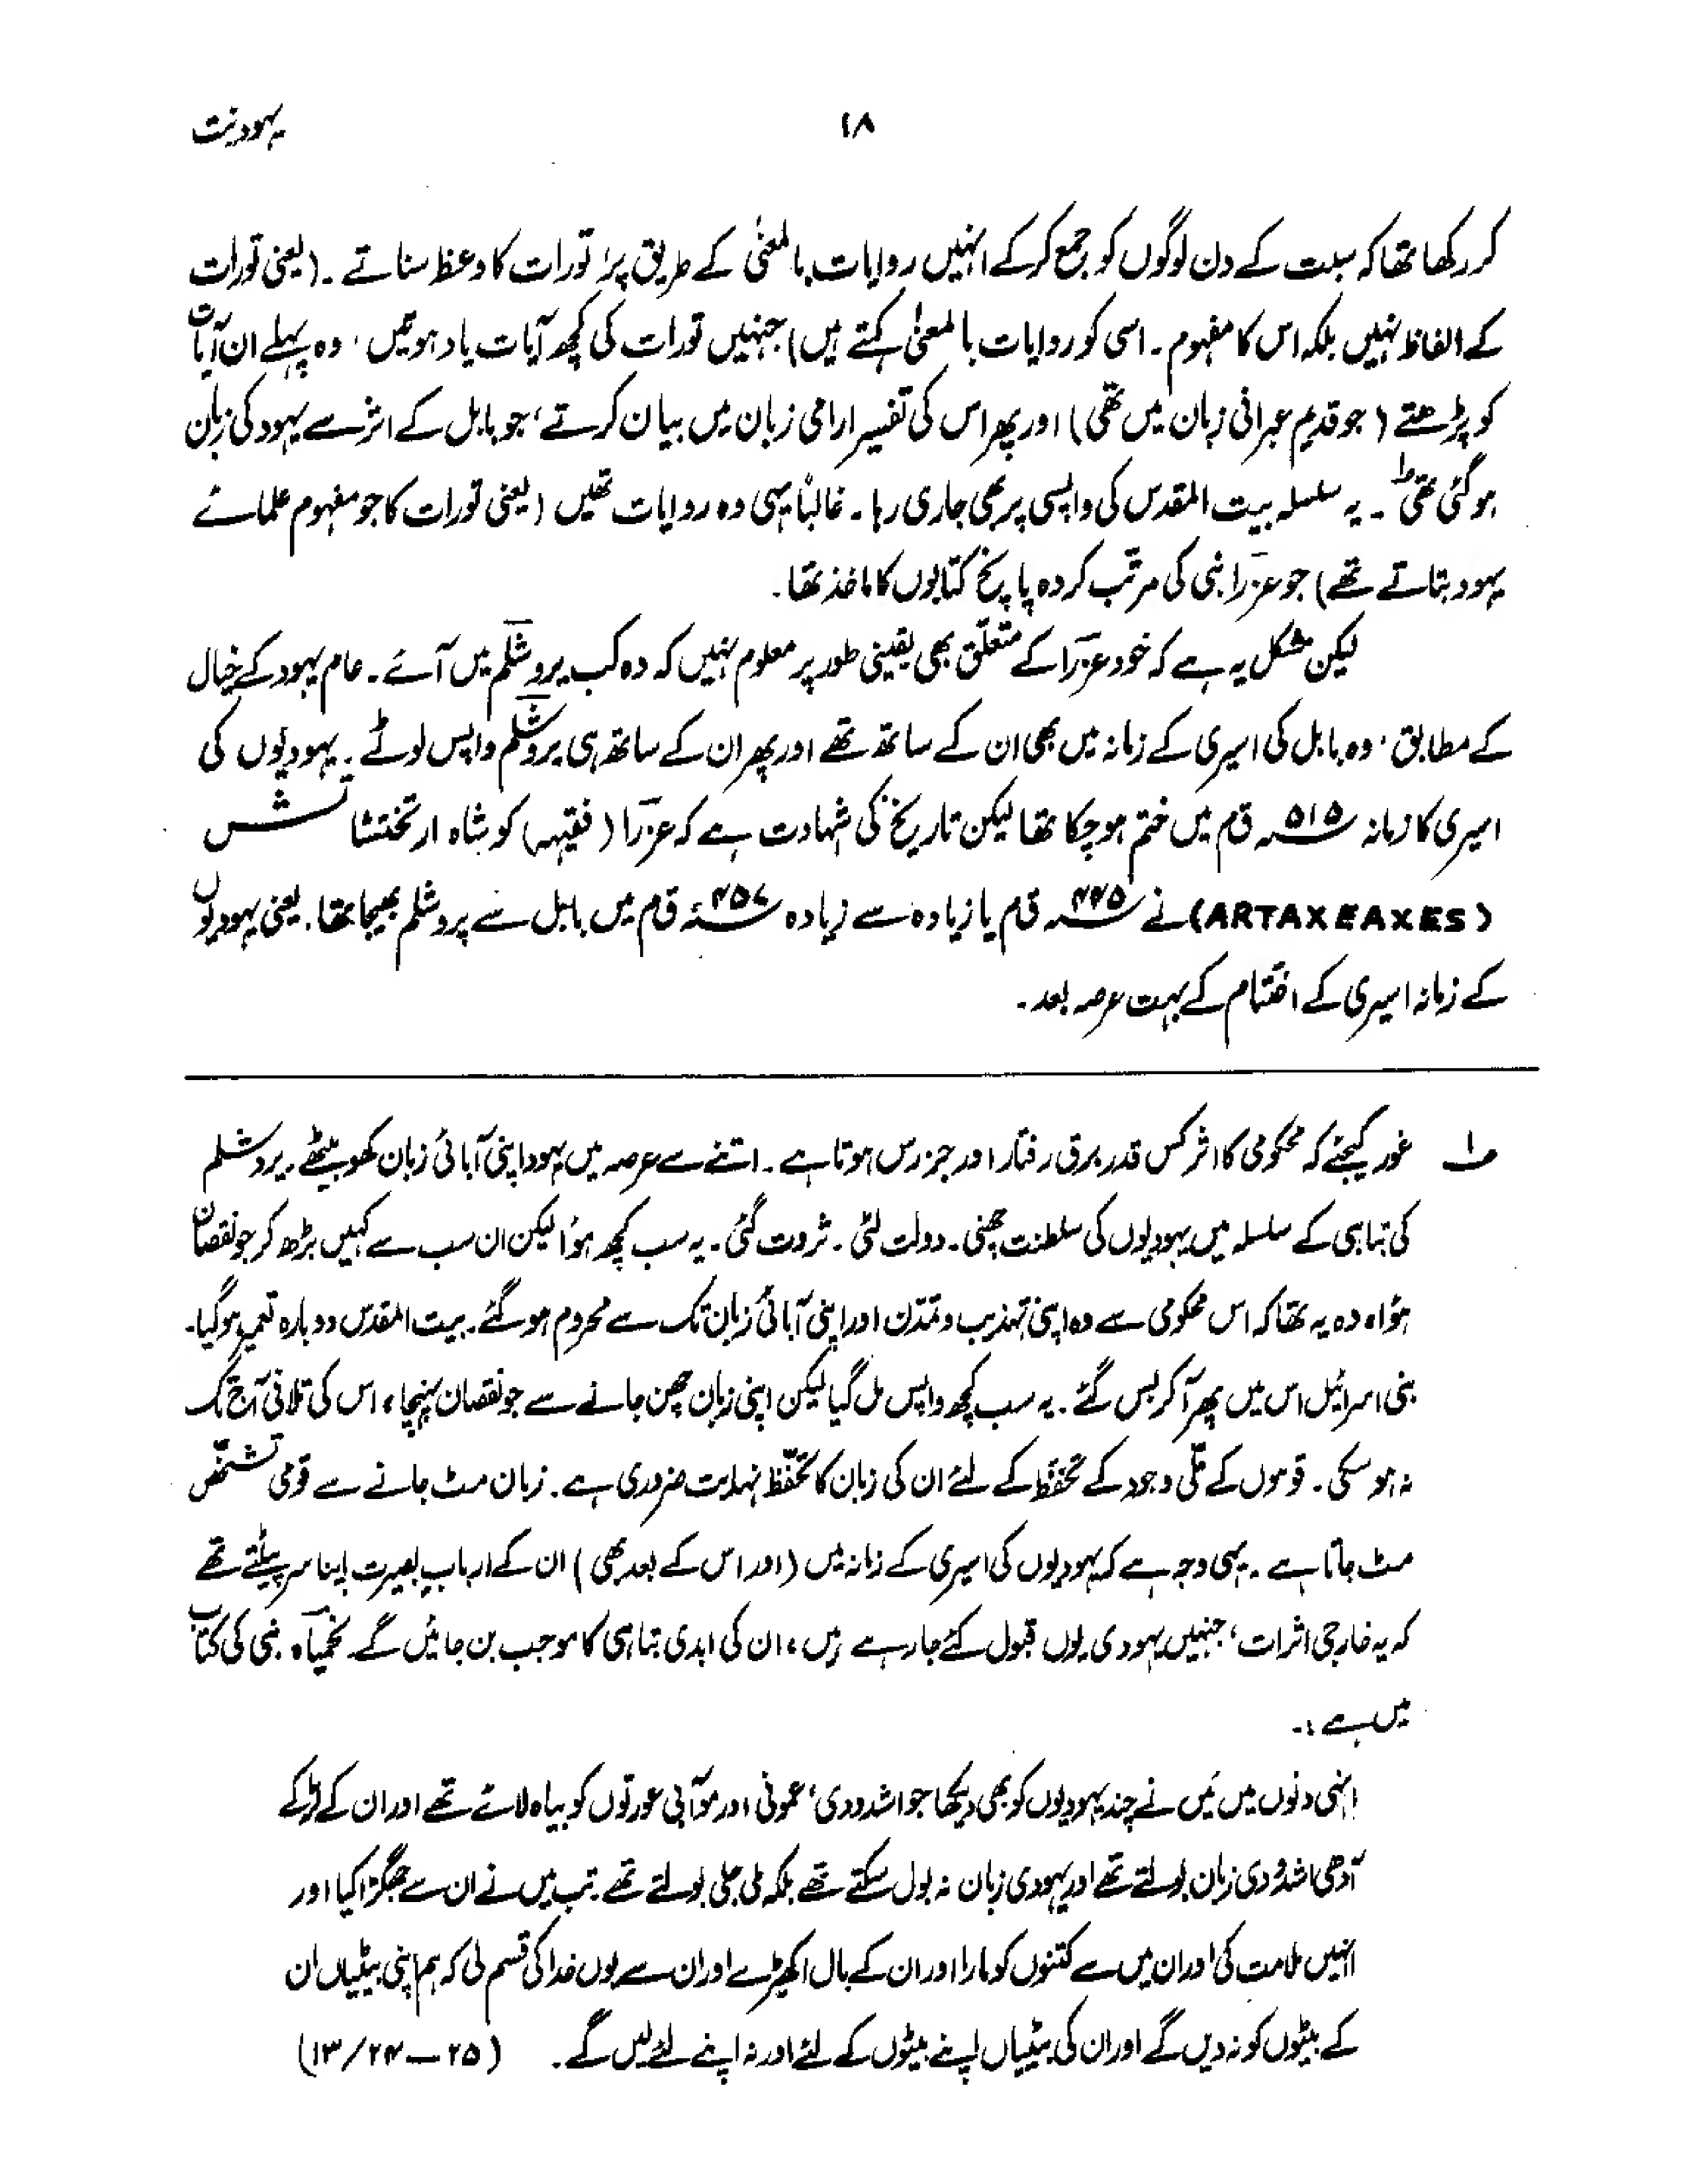 یہودیت
۱۸
کر رکھا تھا کہ سبت کے دن لوگوں کو جمع کرکے انہیں روایات بالمعنیٰ کے طریق پر، تورات کا وعظ سناتے ۔ (یعنی تورات
کے الفاظ نہیں بلکہ اس کا مفہوم ۔ اسی کو روایات بالمعنیٰ کہتے ہیں) جنہیں تورات کی کچھ آیات یاد ہوتیں، وہ پہلے ان آیات
کو پڑھتے (جو قدیم عبرانی زبان میں تھی) اور پھر اس کی تفسیر ارامی زبان میں بیان کرتے، جو بابل کے اثر سے یہود کی زبان
ہو گئی تھی ۱؎ ۔ یہ سلسلہ بیت المقدس کی واپسی پر بھی جاری رہا ۔ غالباً یہی وہ روایات تھیں (یعنی تورات کا جو مفہوم علمائے
یہود بتاتے تھے) جو عزرؔا نبی کی مرتب کردہ پانچ کتابوں کا ماخذ تھا ۔
لیکن مشکل یہ ہے کہ خود عزرؔا کے متعلّق بھی یقینی طور پر معلوم نہیں کہ وہ کب یروشلم میں آئے ۔ عام یہود کے خیال
کے مطابق، وہ بابل کی اسیری کے زمانہ میں بھی ان کے ساتھ تھے اور پھر ان کے ساتھ ہی یروشلم واپس لوٹے ۔ یہودیوں کی
اسیری کا زمانہ ۵۱۵؁ ق م میں ختم ہو چکا تھا لیکن تاریخ کی شہادت ہے کہ عزرؔا (فقیہہ) کو شاہ ارتخششتا
(ARTAXEAXES) نے ۴۴۵؁ ق م یا زیادہ سے زیادہ ۴۵۷؁ ق م میں بابل سے یروشلم بھیجا تھا ۔ یعنی یہودیوں
کے زمانہ اسیری کے اختتام کے بہت عرصہ بعد ۔
۱؎ غور کیجئے کہ محکومی کا اثر کس قدر برق رفتار اور جزرس ہوتا ہے ۔ اتنے سے عرصہ میں یہود اپنی آبائی زبان کھو بیٹھے ۔ یروشلم
کی تباہی کے سلسلہ میں یہودیوں کی سلطنت چھنی ۔ دولت لٹی ۔ ثروت گئی ۔ یہ سب کچھ ہؤا لیکن ان سب سے کہیں بڑھ کر جو نقصان
ہؤا، وہ یہ تھا کہ اس محکومی سے وہ اپنی تہذیب و تمدّن اور اپنی آبائی زبان تک سے محروم ہو گئے ۔ بیت المقدس دوبارہ تعمیر ہو گیا ۔
بنی اسرائیل اس میں پھر آ کر بس گئے ۔ یہ سب کچھ واپس مل گیا لیکن اپنی زبان چھن جانے سے جو نقصان پہنچا، اس کی تلافی آج تک
نہ ہو سکی ۔ قوموں کے ملّی وجود کے تحفّظ کے لئے ان کی زبان کا تحفّظ نہایت ضروری ہے ۔ زبان مٹ جانے سے قومی تشخّص
مٹ جاتا ہے ۔ یہی وجہ ہے کہ یہودیوں کی اسیری کے زمانہ میں (اور اس کے بعد بھی) ان کے اربابِ بصیرت اپنا سر پیٹتے تھے
کہ یہ خارجی اثرات، جنہیں یہودی یوں قبول کئے جا رہے ہیں، ان کی ابدی تباہی کا موجب بن جائیں گے ۔ نحمیاؔہ نبی کی کتاب
میں ہے :۔
انہی دنوں میں مَیں نے چند یہودیوں کو بھی دیکھا جو اشدودی، عمونی اور موآبی عورتوں کو بیاہ لائے تھے اور ان کے لڑکے
آدھی اشدودی زبان بولتے تھے اور یہودی زبان نہ بول سکتے تھے بلکہ ملی جلی بولتے تھے ۔ تب میں نے ان سے جھگڑا کیا اور
انہیں ملامت کی اور ان میں سے کتنوں کو مارا اور ان کے بال اکھیڑے اور ان سے یوں خدا کی قسم لی کہ ہم اپنی بیٹیاں ان
کے بیٹوں کو نہ دیں گے اور ان کی بیٹیاں اپنے بیٹوں کے لئے اور نہ اپنے لئے لیں گے ۔ (۱۳/۲۴—۲۵)